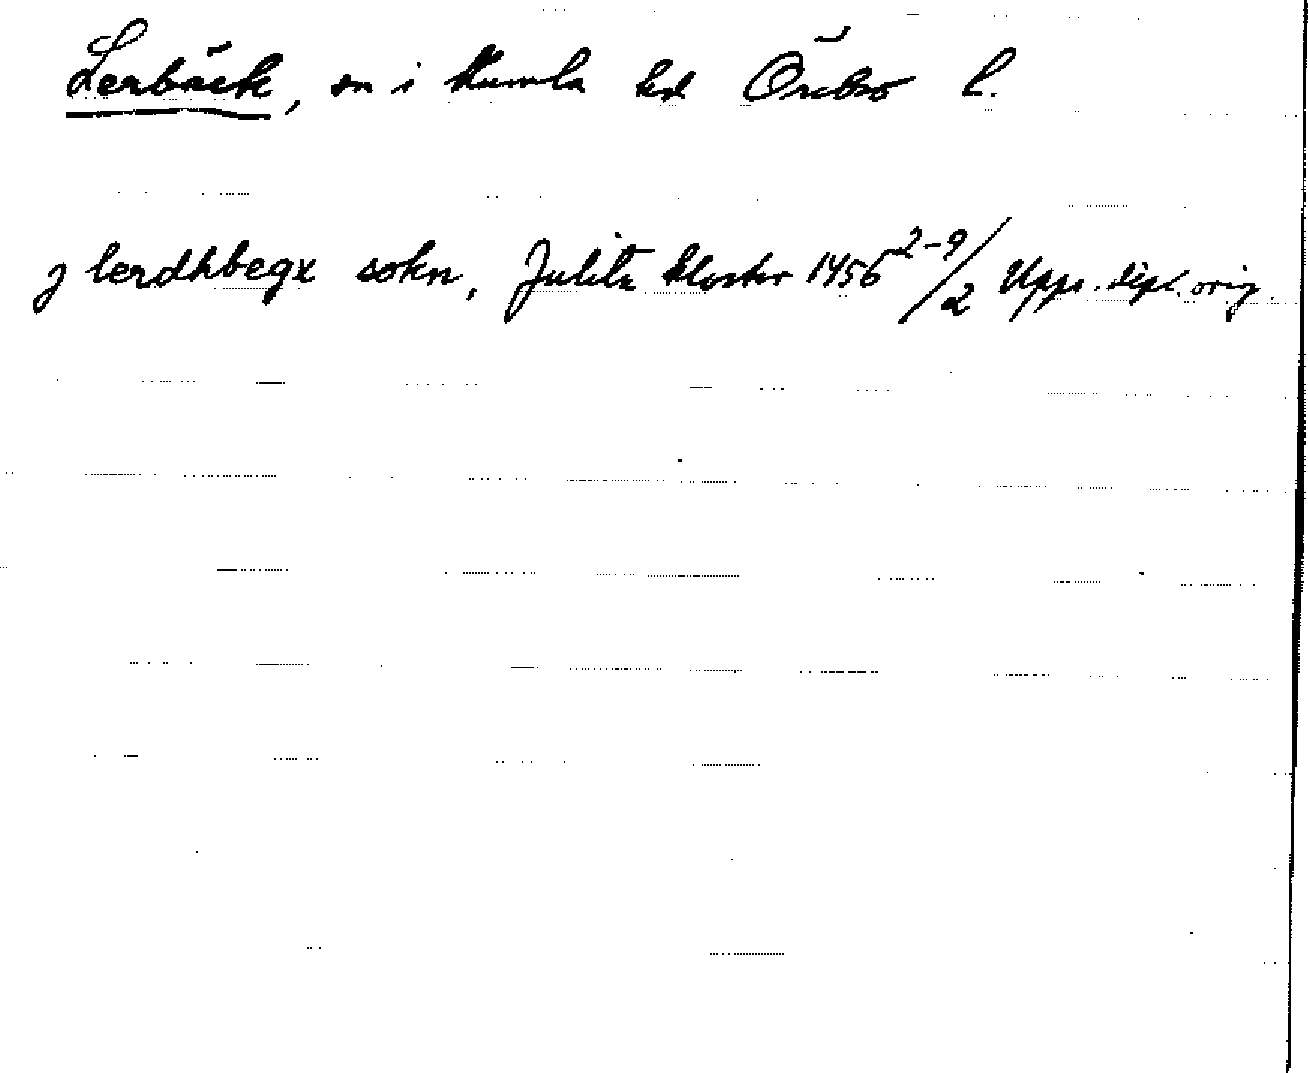 Lerbäck, sn i Kumla hd Örebro l.
j lerdhbegx sokn, Julita kloster 1456 2-9/2 Upps. dipl. orig.